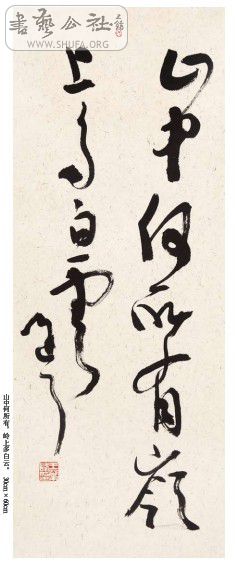 書藝公社
WWW.SHUFA.ORG
山中何所有嶺
上多白雲
山中何所有，岭上多白云。 30cm×60cm